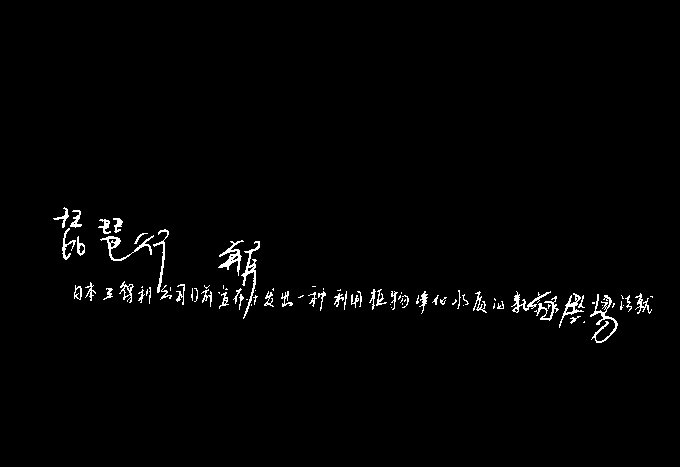 琵琶行
日本三得利公司日前宣布开发出一种利用植物净化水质的新
法就